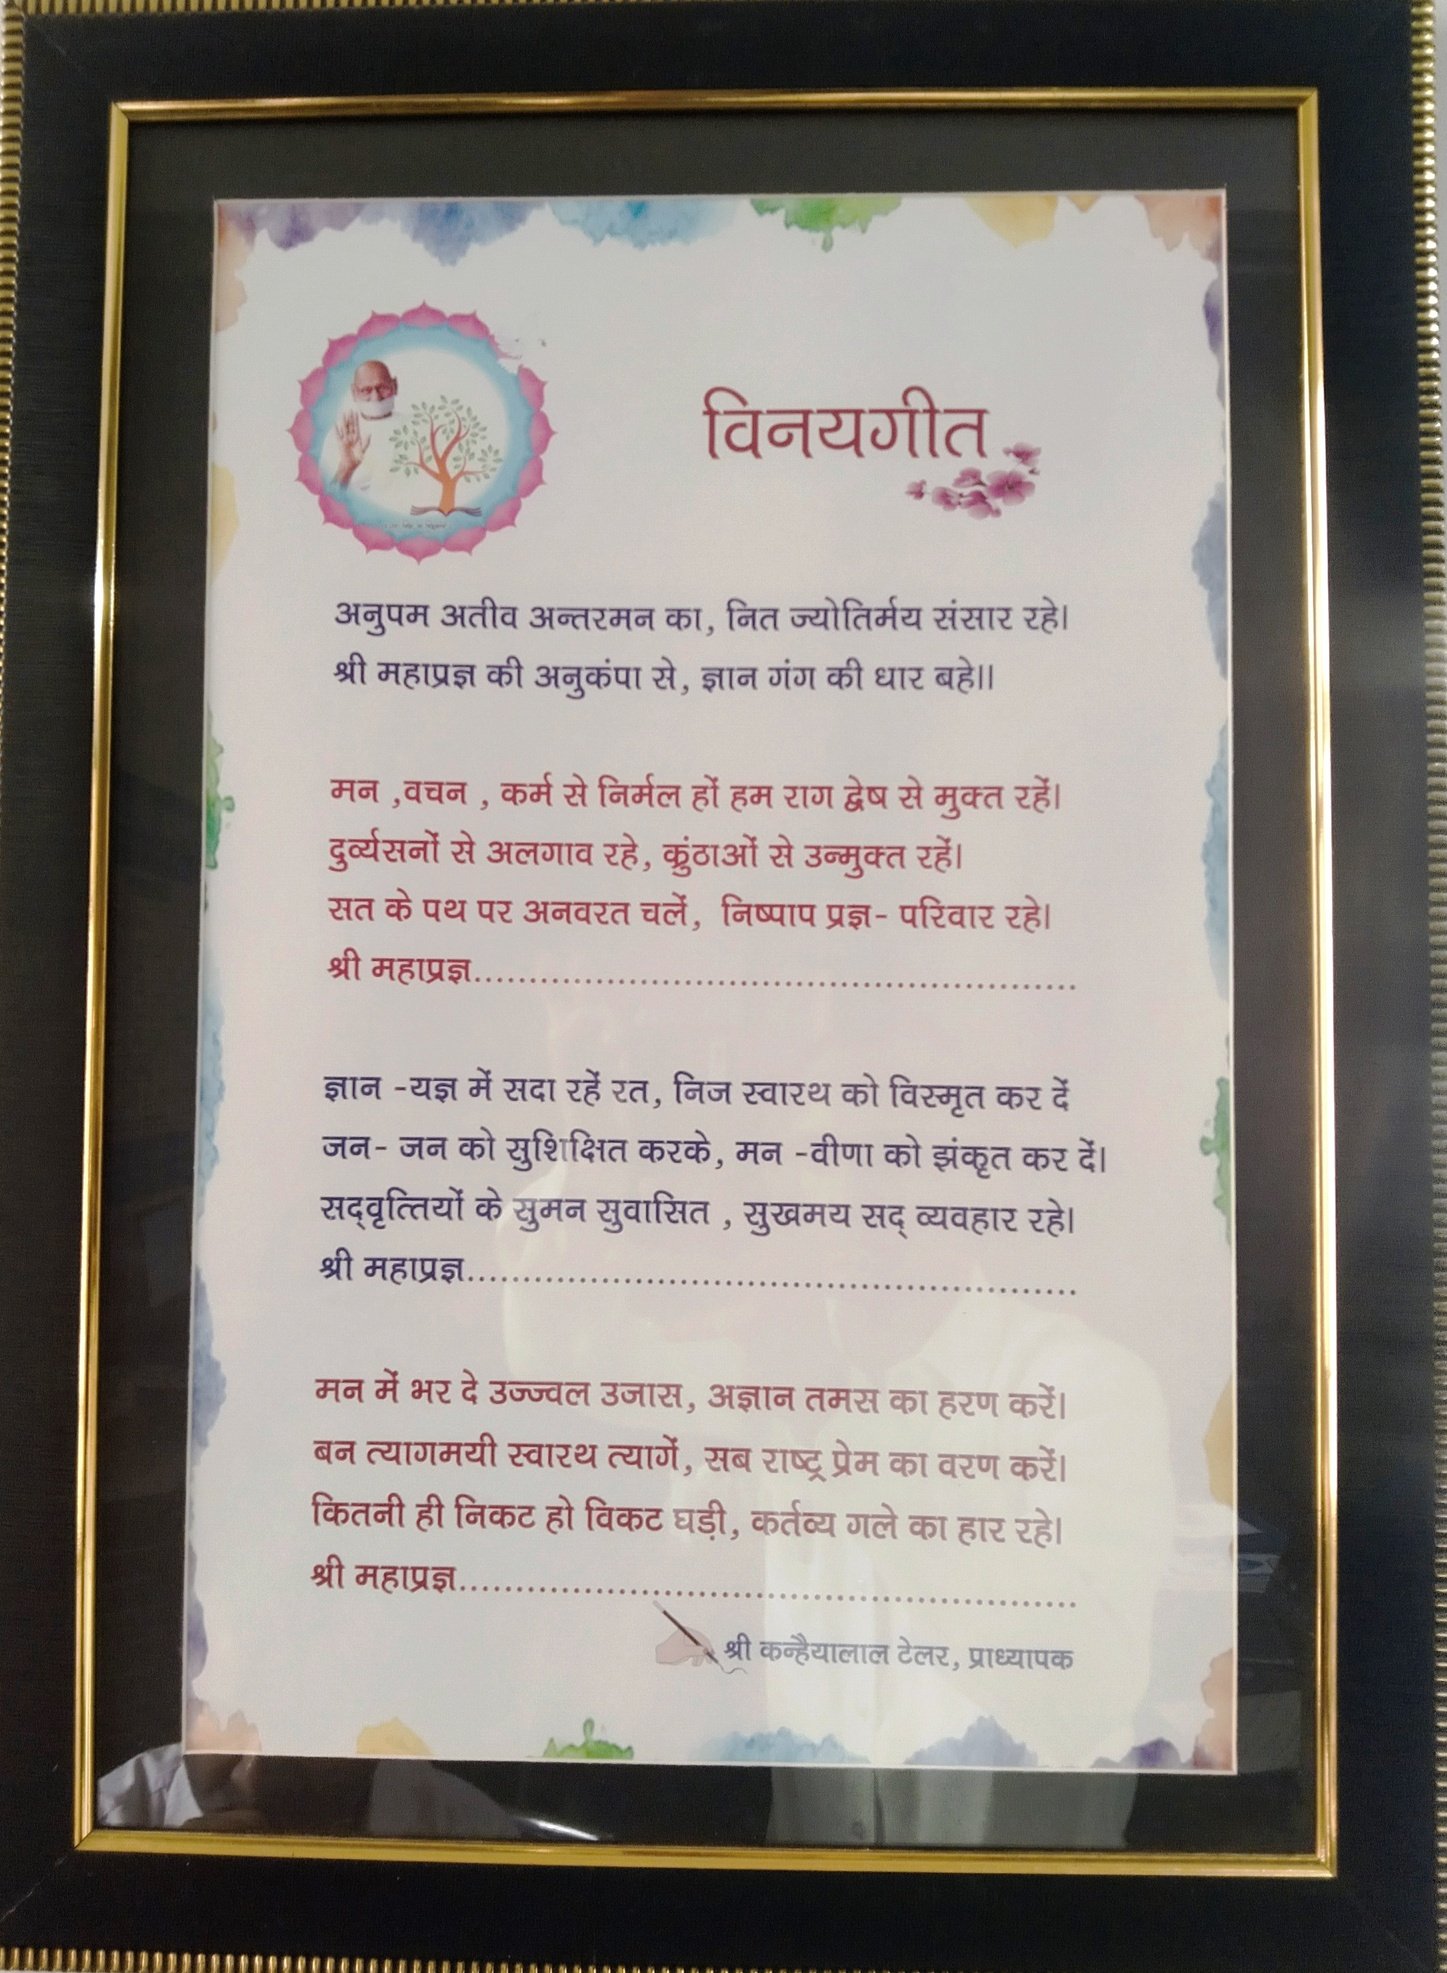 विनयगीत
अनुपम अतीव अन्तरमन का, नित ज्योतिर्मय संसार रहे।
श्री महाप्रज्ञ की अनुकंपा से, ज्ञान गंग की धार बहे।।
मन ,वचन , कर्म से निर्मल हों हम राग द्वेष से मुक्त रहें।
दुर्व्यसनों से अलगाव रहे, कुंठाओं से उन्मुक्त रहें।
सत के पथ पर अनवरत चलें, निष्पाप प्रज्ञ- परिवार रहे।
श्री महाप्रज्ञ.......................................................
ज्ञान -यज्ञ में सदा रहें रत, निज स्वारथ को विस्मृत कर दें
जन- जन को सुशिक्षित करके, मन -वीणा को झंकृत कर दें।
सद्‌वृत्तियों के सुमन सुवासित , सुखमय सद् व्यवहार रहे।
श्री महाप्रज्ञ.......................................................
मन में भर दे उज्ज्वल उजास, अज्ञान तमस का हरण करें।
बन त्यागमयी स्वारथ त्यागें, सब राष्ट्र प्रेम का वरण करें।
कितनी ही निकट हो विकट घड़ी, कर्तव्य गले का हार रहे।
श्री महाप्रज्ञ.......................................................
श्री कन्हैयालाल टेलर, प्राध्यापक